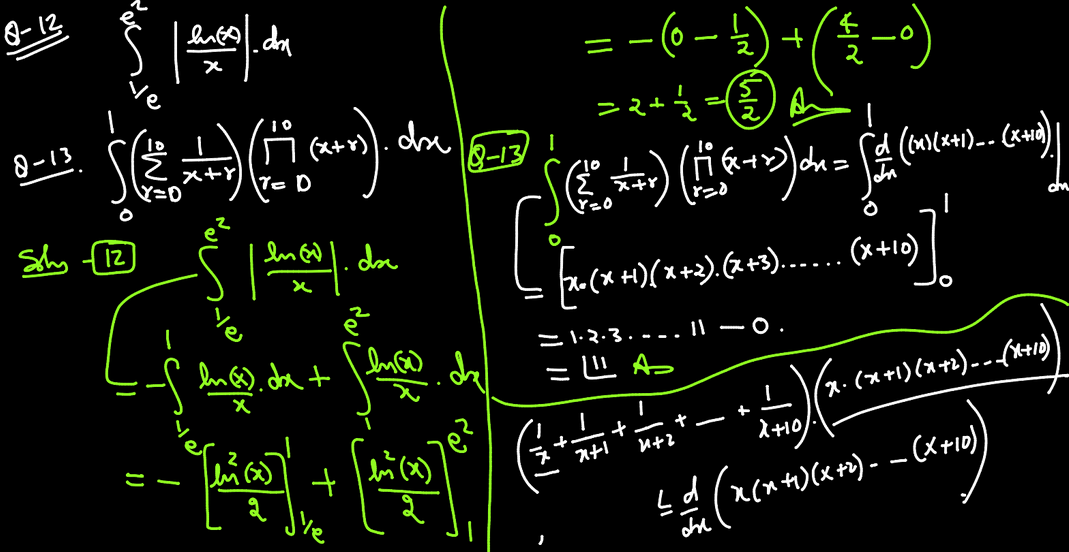 Q-12 ∫_{1/e}^{e²} |ln(x)/x|.dx
Q-13. ∫_0^1 (∑_{r=0}^{10} 1/(x+r)) (∏_{r=0}^{10} (x+r)). dx
Soln - 12 ∫_{1/e}^{e²} |ln(x)/x|. dx
= -∫_{1/e}^1 ln(x)/x .dx + ∫_1^{e²} ln(x)/x . dx
= - [ln²(x)/2]_{1/e}^1 + [ln²(x)/2]_1^{e²}
= -(0 - 1/2) + (4/2 - 0)
= 2 + 1/2 = 5/2 Ans
Q-13 ∫_0^1 (∑_{r=0}^{10} 1/(x+r)) (∏_{r=0}^{10} (x+r)) dx = ∫_0^1 d/dx ((x)(x+1)...(x+10)). dx
= [x.(x+1)(x+2).(x+3)...... (x+10)]_0^1
= 1.2.3..... 11 - 0.
= ⌊11 Ans
(1/x + 1/(x+1) + 1/(x+2) + --- + 1/(x+10)).(x.(x+1)(x+2)----(x+10))
= d/dx (x(x+1)(x+2)---(x+10))